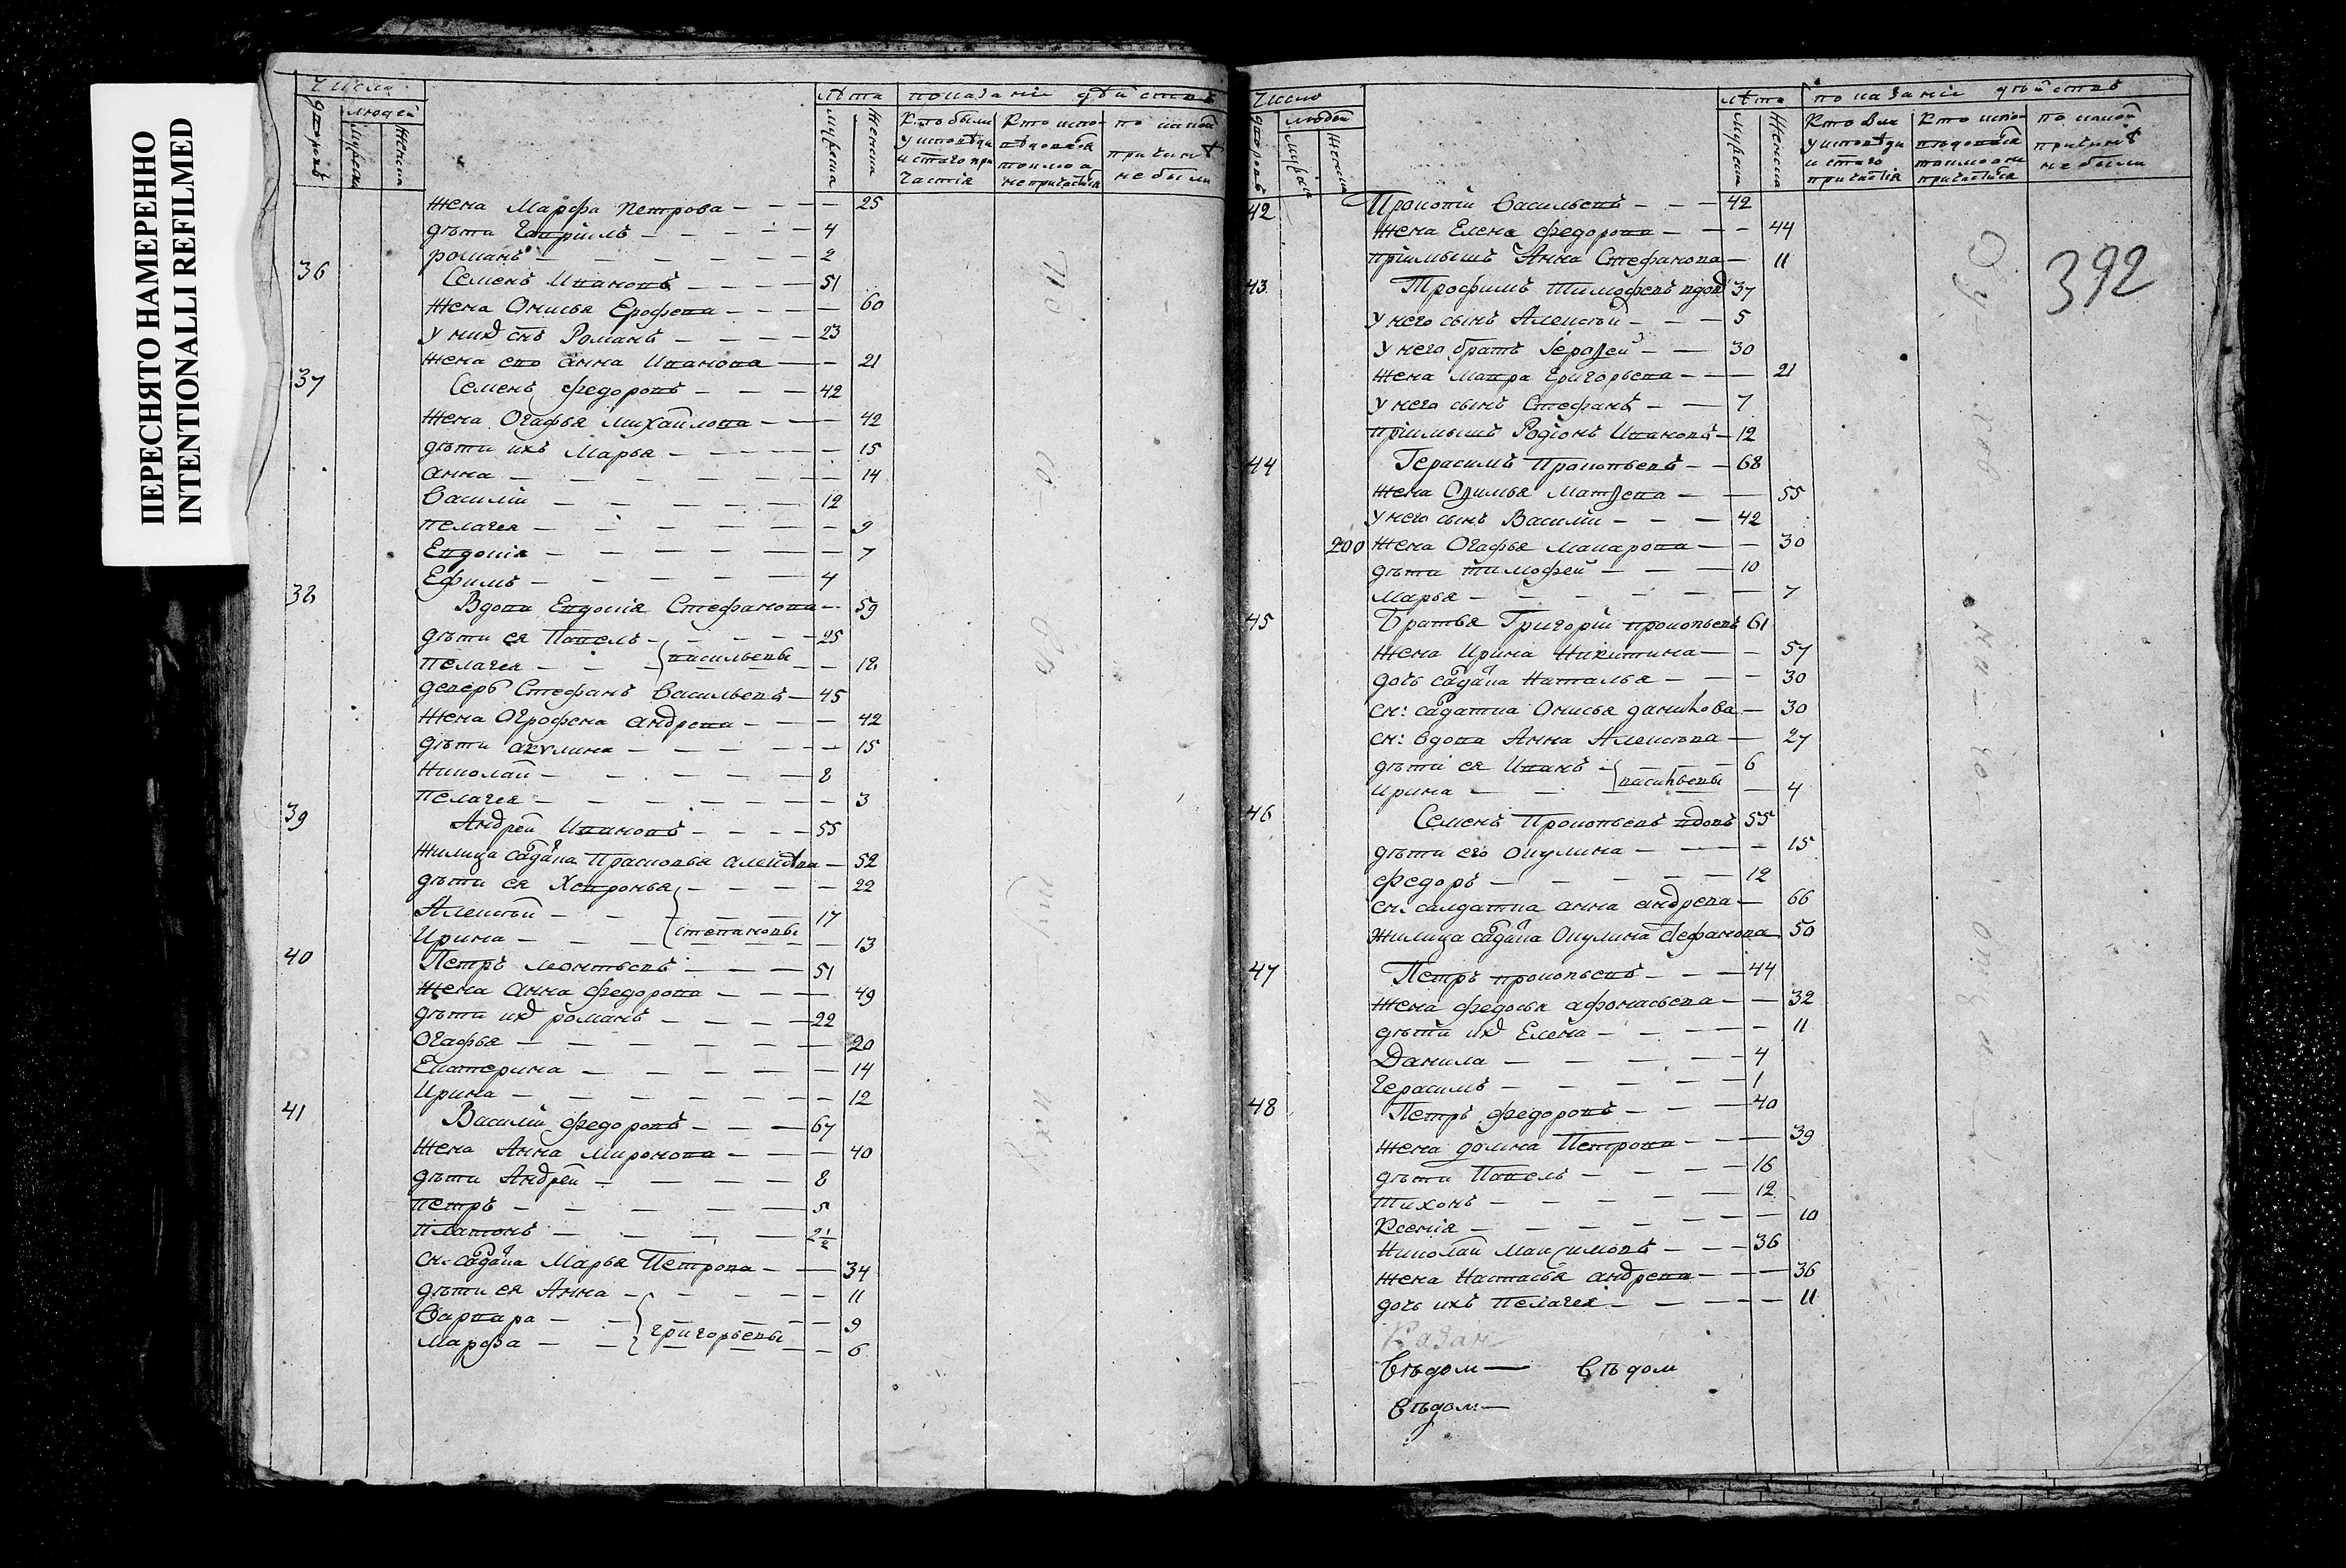 ПЕРЕСНЯТО НАМЕРЕННО
INTENTIONALLI REFILMED
Число
людей
дворовъ
мужеска
женска
лѣта
мужеска
женска
показаніе дѣйствъ
Кто были у исповѣди и с̃таго причастія
Кто исповѣдовался токмо а не причастился
по какой причинѣ не были
жена Марфа Петрова — 25
дѣти Гаврилъ — 4
романъ — 2
36 Семенъ Ивановъ — 51
жена Онисья Ерофева — 60
у них сн̃ъ Романъ — 23
жена ево анна Иванова — 21
37 Семенъ Федоровъ — 42
жена Огафья Михаилова — 42
дѣти ихъ Марья — 15
анна — 14
Василій — 12
пелагея — 9
Евдокія — 7
Ефимъ — 4
38 Вдова Евдокія Стефанова — 59
дѣти ея Павелъ — 25
пелагея — васильевы — 18
деверь Стефанъ Васильевъ — 45
жена Огрофена андрева — 42
дѣти акулина — 15
Николай — 8
пелагея — 3
39 Андрей Ивановъ — 55
жилица салдатка Прасковья алексѣвна — 52
дѣти ея Хавронья — 22
Алексѣй — 17
Ирина — степановы — 13
40 Петръ леонтьевъ — 51
жена анна Федорова — 49
дѣти их романъ — 22
Огафья — 20
Екатерина — 14
Ирина — 12
41 Василій Федоровъ — 67
жена Анна Миронова — 40
дѣти Андрей — 8
петръ — 5
платонъ — 2½
сн: салдатка Марья Петрова — 34
дѣти ея Анна — 11
Варвара — 9
Марфа — григорьевы — 6
Число
людей
дворовъ
мужеск
женска
лѣта
мужеска
женска
показаніе дѣйствъ
Кто были у исповѣди и с̃таго причастія
Кто исповѣдовался токмо а не причастился
по какой причинѣ не были
392
42 Прокопій Васильевъ — 42
жена Елена Федорова — 44
пріимышъ Анна Стефанова — 11
43 Трофимъ Тимофевъ вдов 37
у него сынъ Алексѣй — 5
у него братъ Ерофей — 30
жена Мавра Григорьева — 21
у него сынъ Стефанъ — 7
пріимышъ Родіонъ Ивановъ — 12
44 Герасимъ Прокопьевъ — 68
жена Матфева — 55
у него сынъ Василій — 42
200 жена Огафья Макарова — 30
дѣти тимофей — 10
Марья — 7
45 Братья Григорій прокопьевъ 61
жена Ирина Никитина — 57
дочь салдатка Наталья — 30
сн: салдатка Онисья данилова — 30
сн: вдова Анна Алексѣва — 27
дѣти ея Иванъ — 6
Ирина — васильевы — 4
46 Семенъ Прокопьевъ вдовъ 55
дѣти его окулина — 15
Федоръ — 12
сн. салдатка анна андрева — 66
жилица салдатка Окулина стефанова 50
47 Петръ прокопьевъ — 44
жена Федосья афонасьева — 32
дѣти их Елена — 11
Данила — 4
Герасимъ — 1
48 Петръ Федоровъ — 40
жена домна Петрова — 39
дѣти Павелъ — 16
тихонъ — 12
Ксенія — 10
Николай Максимовъ — 36
жена Настасья андрева — 36
дочь ихъ пелагея — 11
Казан
Вѣдом — Вѣдом
Вѣдом —